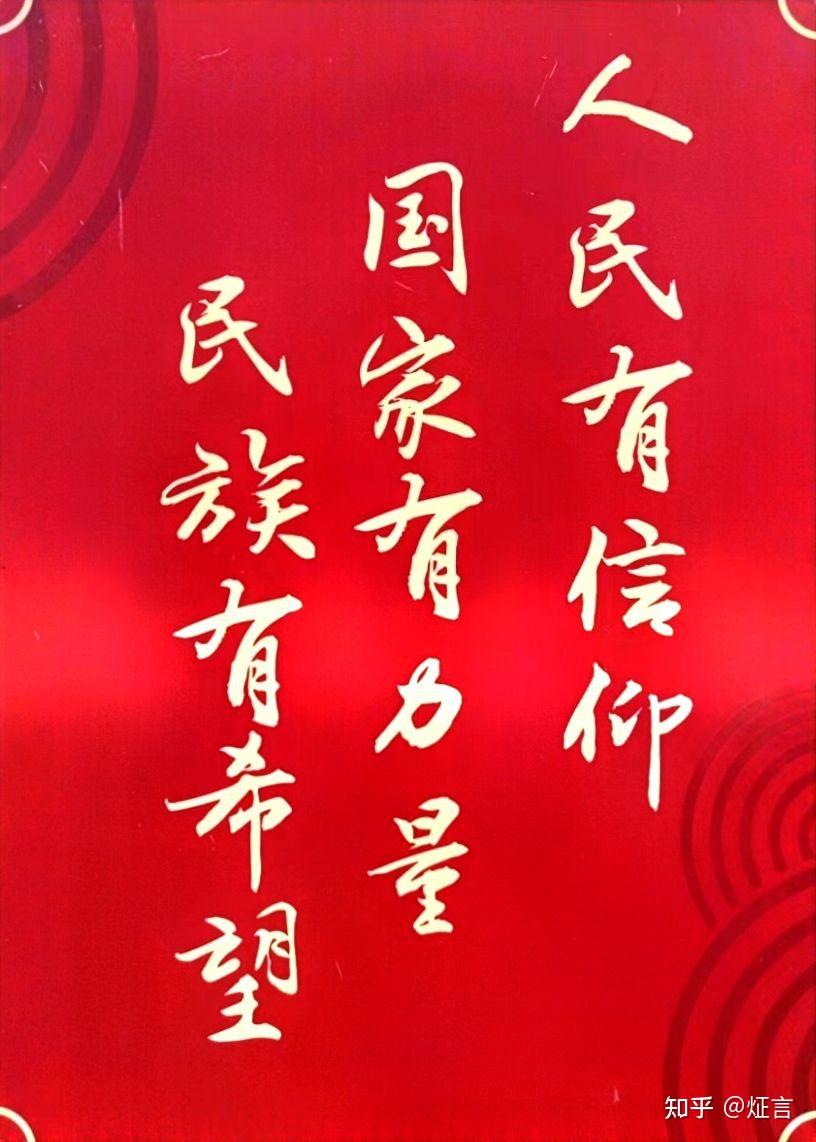 人民有信仰
国家有力量
民族有希望
知乎 @怔言